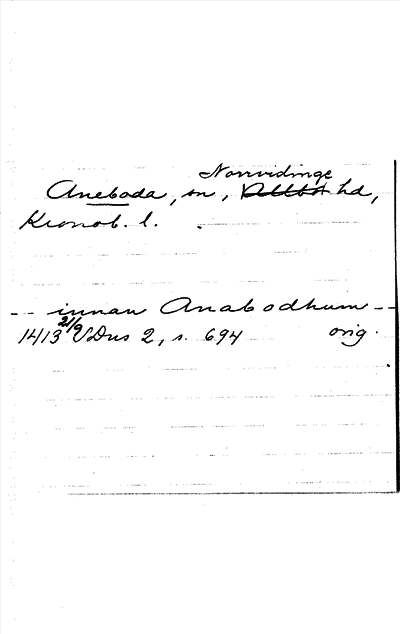 Norrvidinge
Aneboda, sn, Allbo hd,
Kronob. l.
-- innan Anabodhum --
1413 21/9 SDns 2, s. 694 orig.